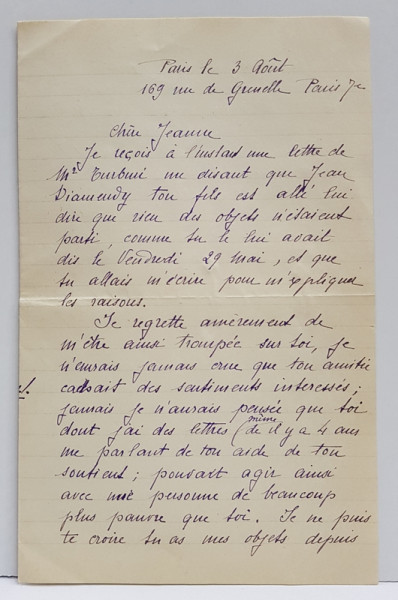 Paris le 3 Août
169 rue de Grenelle Paris 7e
Chère Jeanne
Je reçois à l'instant une lettre de
Mr me disant que Jean
Diamendy ton fils est allé lui
dire que rien des objets n'étaient
parti, comme tu le lui avait
dis le Vendredi 29 mai, et que
tu allais m'écrire pour m'expliquer
les raisons.
Je regrette amèrement de
m'être ainsi trompée sur toi, je
n'aurais jamais crue que ton amitié
cachait des sentiments interessés;
jamais je n'aurais pensée que toi
dont j'ai des lettres (même de il y a 4 ans
me parlant de ton aide de ton
soutient; pouvait agir ainsi
avec une personne de beaucoup
plus pauvre que toi. Je ne puis
te croire tu as mes objets depuis